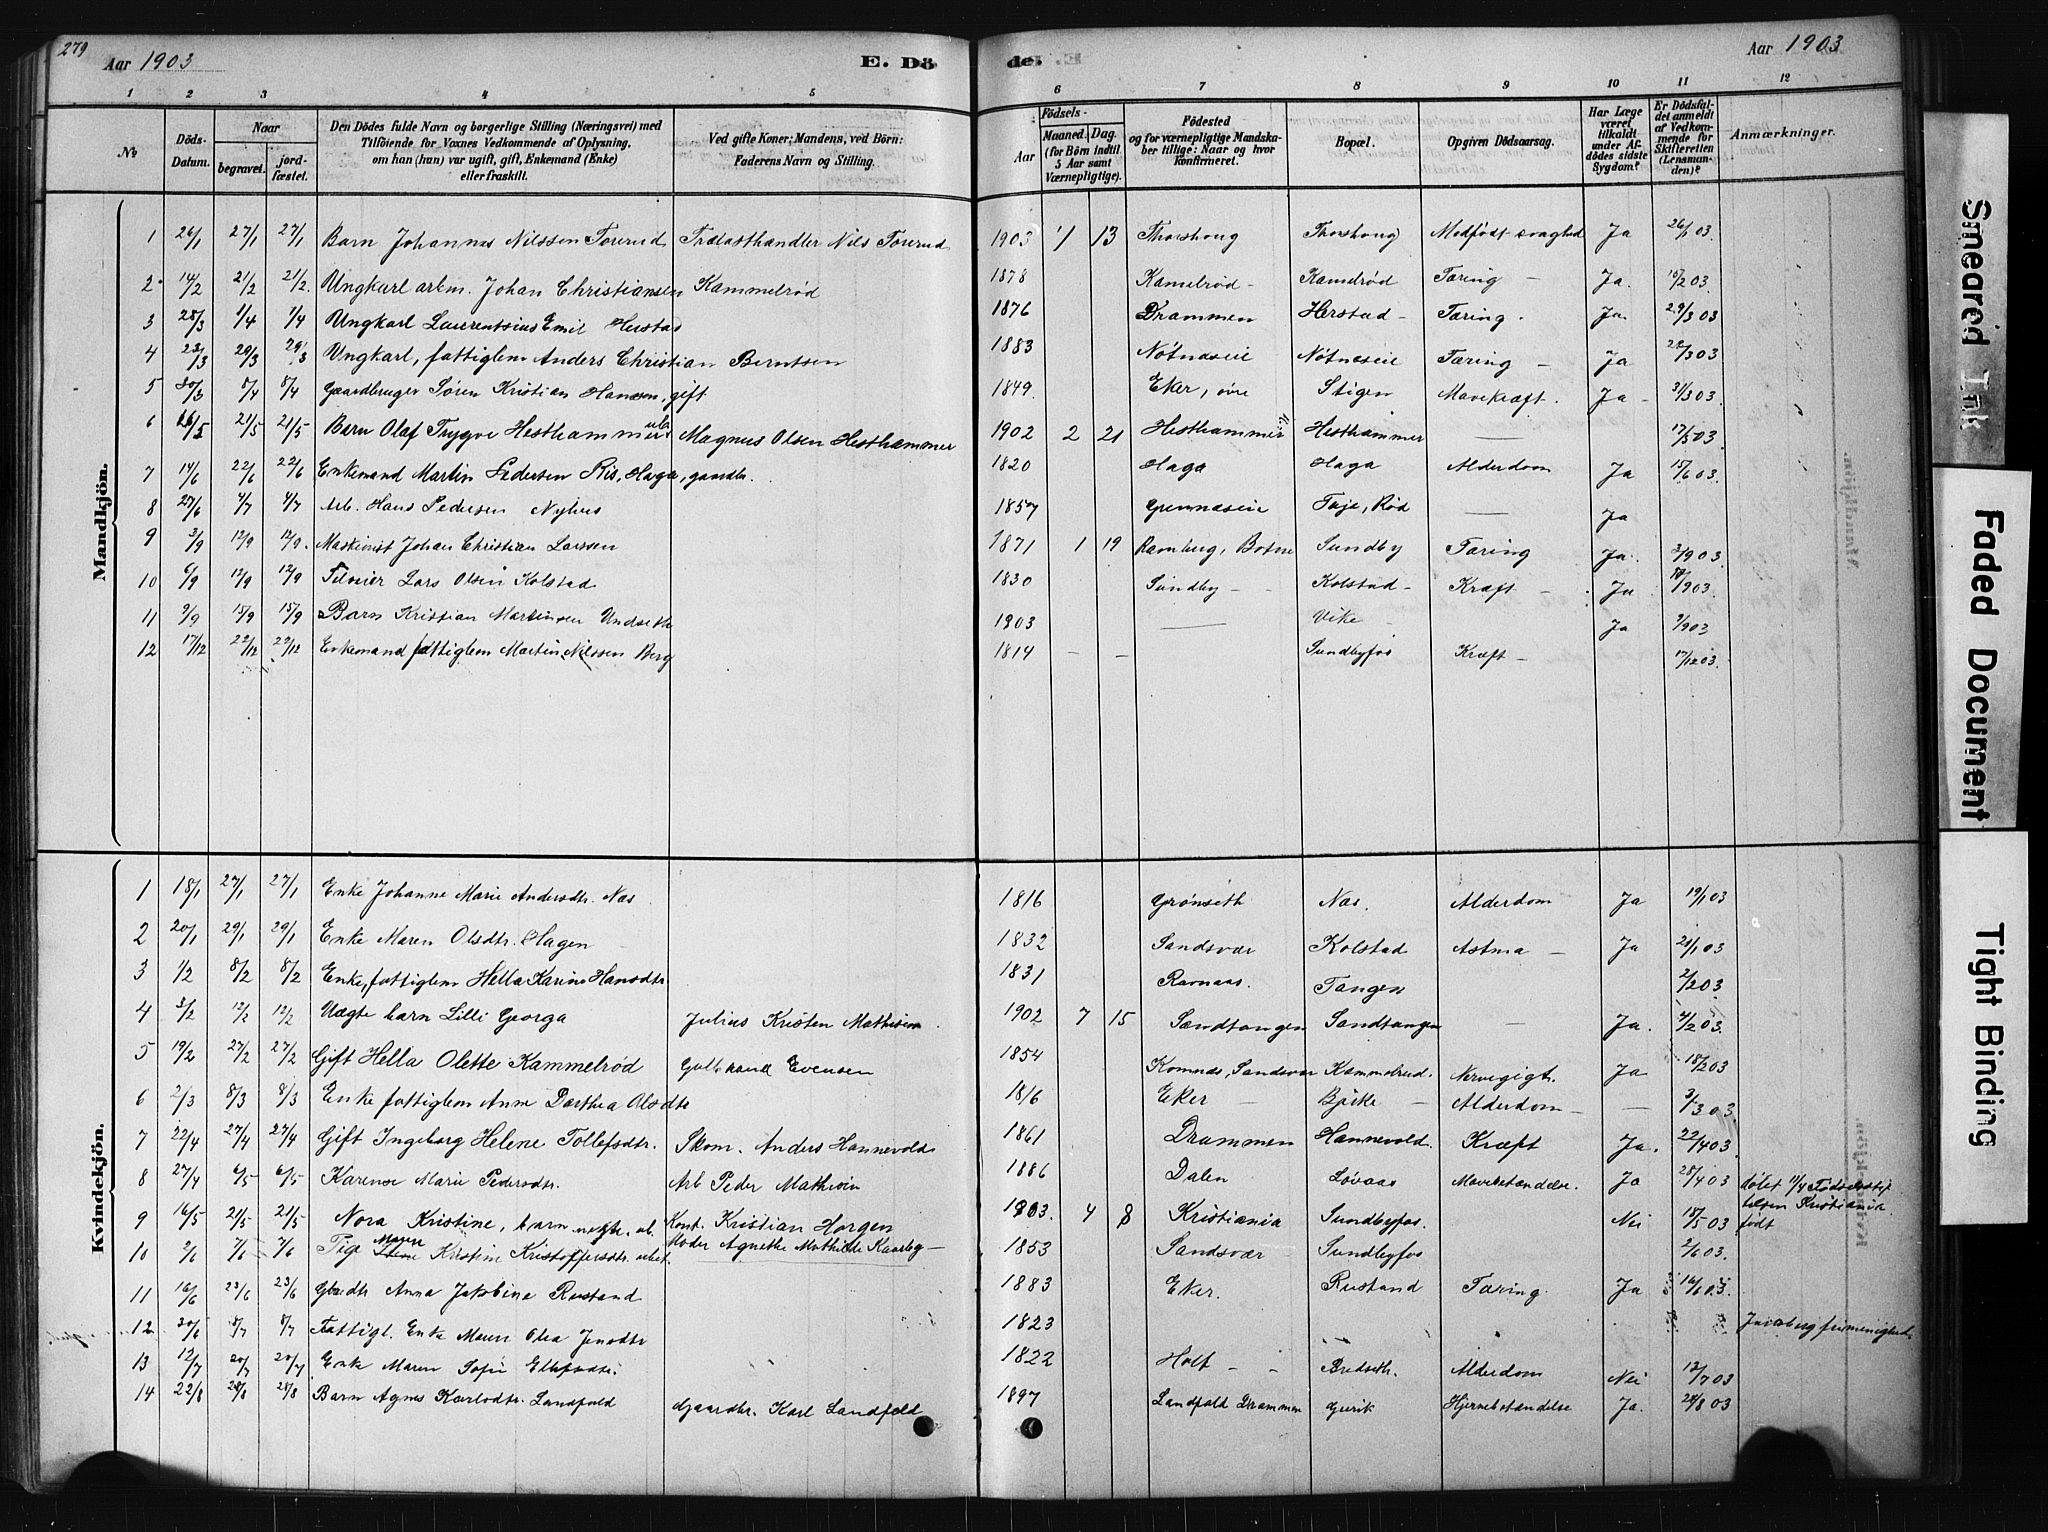 279
Aar 1903
E. Dö
de.
Aar 1903
1 2 3 4 5
6 7 8 9 10 11 12
No
Döds-Datum.
Naar
begravet.
jord-fæstet.
Den Dödes fulde Navn og borgerlige Stilling (Næringsvei) med
Tilföiende for Voxnes Vedkommende af Oplysning,
om han (hun) var ugift, gift, Enkemand (Enke)
eller fraskilt.
Ved gifte Koner: Mandens, ved Börn:
Faderens Navn og Stilling.
Födsels-
Aar
Maaned. Dag.
(for Börn indtil
5 Aar samt
Værnepligtige).
Födested
og for værnepligtige Mandska-
ber tillige: Naar og hvor
konfirmeret.
Bopæl.
Opgiven Dödsaarsag.
Har Læge
været
tilkaldt
under Af-
dödes sidste
Sygdom?
Er Dödsfal-
det anmeldt
af Vedkom-
mende for
Skifteretten
(Lensman-
den)?
Anmærkninger.
Mandkjön.
1 26/1 27/1 27/1 Barn Johannes Nilssen Torerud Trælasthandler Nils Torerud 1903 1/ 13 Thorshoug Thorshoug Medfödt svaghed Ja 26/1 03
2 14/2 21/2 21/2 Ungkarl arbm. Johan Christiansen Kammelrød 1878 Kamelrød Kamelrød Tæring Ja 16/2 03
3 28/3 1/4 1/4 Ungkarl Laurentsius Emil Herstad 1876 Drammen Herstad Tæring Ja 29/3 03
4 23/3 29/3 29/3 Ungkarl, fattiglem Anders Christian Berntsen 1883 Nøtnæseie Nøtnæseie Tæring Ja 28/3 03
5 30/3 8/4 8/4 Gaardbruger Søren Kristian Hansen, gift 1849 Eker, øvre Stigen Mavekræft Ja 31/3 03
6 16/5 21/5 21/5 Barn Olaf Trygve Hesthammer Magnus Olsen Hesthammer 1902 2 21 Hesthammer Hesthammer — 17/5 03
7 14/6 22/6 22/6 Enkemand Martin Pedersen Ris, Haga, gaardbr. 1820 Haga Haga Alderdom Ja 15/6 03
8 27/6 4/7 4/7 Arb. Hans Pedersen Nyhus 1857 Grennæseie Teje, Rød — Ja
9 3/9 12/9 12/9 Maskinist Johan Christian Larssen 1871 1 19 Ramberg, Botne Sundby Tæring Ja 3/9 03
10 6/9 12/9 12/9 Selveier Lars Olsen Kolstad 1830 Sundby Kolstad Kræft Ja /9 03
11 9/9 15/9 15/9 Barn Kristian Martinsen Undseth 1903 — Vike Ja 9/9 03
12 17/12 22/12 22/12 Enkemand fattiglem Martin Nilssen Berg 1814 — — Sundbyfos Kræft 17/12 03
Kvindekjön.
1 18/1 27/1 27/1 Enke Johanne Marie Andersdtr. Næs 1816 Grønseth Næs. Alderdom Ja 19/1 03
2 20/1 29/1 29/1 Enke Maren Olsdtr. Hagen 1832 Sandsvær Kolstad Astma Ja 21/1 03
3 1/2 8/2 8/2 Enke, fattiglem Hella Karine Hansdtr 1831 Ravnaas. Tangen 2/2 03
4 3/2 12/2 12/2 Uægte barn Lilli Georga Julius Kristen Mathisen 1902 7 15 Sandtangen Sandtangen — Ja. 4/2 03
5 19/2 27/2 27/2 Gift Hella Olette Kammelrød Gulbrand Evensen 1854 Komnæs, Sandsvær Kammelrud. Nervegigt. Ja 18/2 03
6 2/3 8/3 8/3 Enke fattiglem Anne Dorthea Olsdtr 1816 Eker Bjerke Alderdom — 3/3 03
7 22/4 27/4 27/4 Gift Ingeborg Helene Tollefsdtr. Skom. Anders Hannevold 1861 Drammen Hannevold. Kræft Ja. 22/4 03
8 27/4 6/5 6/5 Karense Marie Pedersdtr. Arb Peder Mathisen 1886 Dalen Løvaas Mavebetændelse. Ja 28/4 03
9 16/5 21/5 21/5 Nora Kristine, barn uægte Kristian Horgen 1903. 4 8 Kristiania Sundbyfos. Nei 18/5 03 døbt 11/4 Fødselsstif
telsen Kristiania
født
Moder Agnethe Mathilde Kaarby
10 2/6 7/6 7/6 Pige Maren Kristine Kristoffersdtr. 1853 Sandsvær Sundbyfos 2/6 03.
11 16/6 23/6 23/6 Gbrdtr Anna Jakobine Rustand 1883 Eker. Rustand Tæring. Ja 16/6 03.
12 30/6 8/7 8/7 Fattigl. Enke Maren Olea Jensdtr 1823 Jarlsberg frimenighed
13 12/7 20/7 20/7 Enke Maren Sofie Ellefsdtr. 1822 Holt Bredseth. Alderdom Nei 12/7 03
14 22/8 28/8 28/8 Barn Agnes Karlsdtr. Landfald Gaardbr. Karl Landfald 1897 Landfald Drammen Gurik Hjernebetændelse Ja. 24/8 03
Smeared Ink
Faded Document
Tight Binding